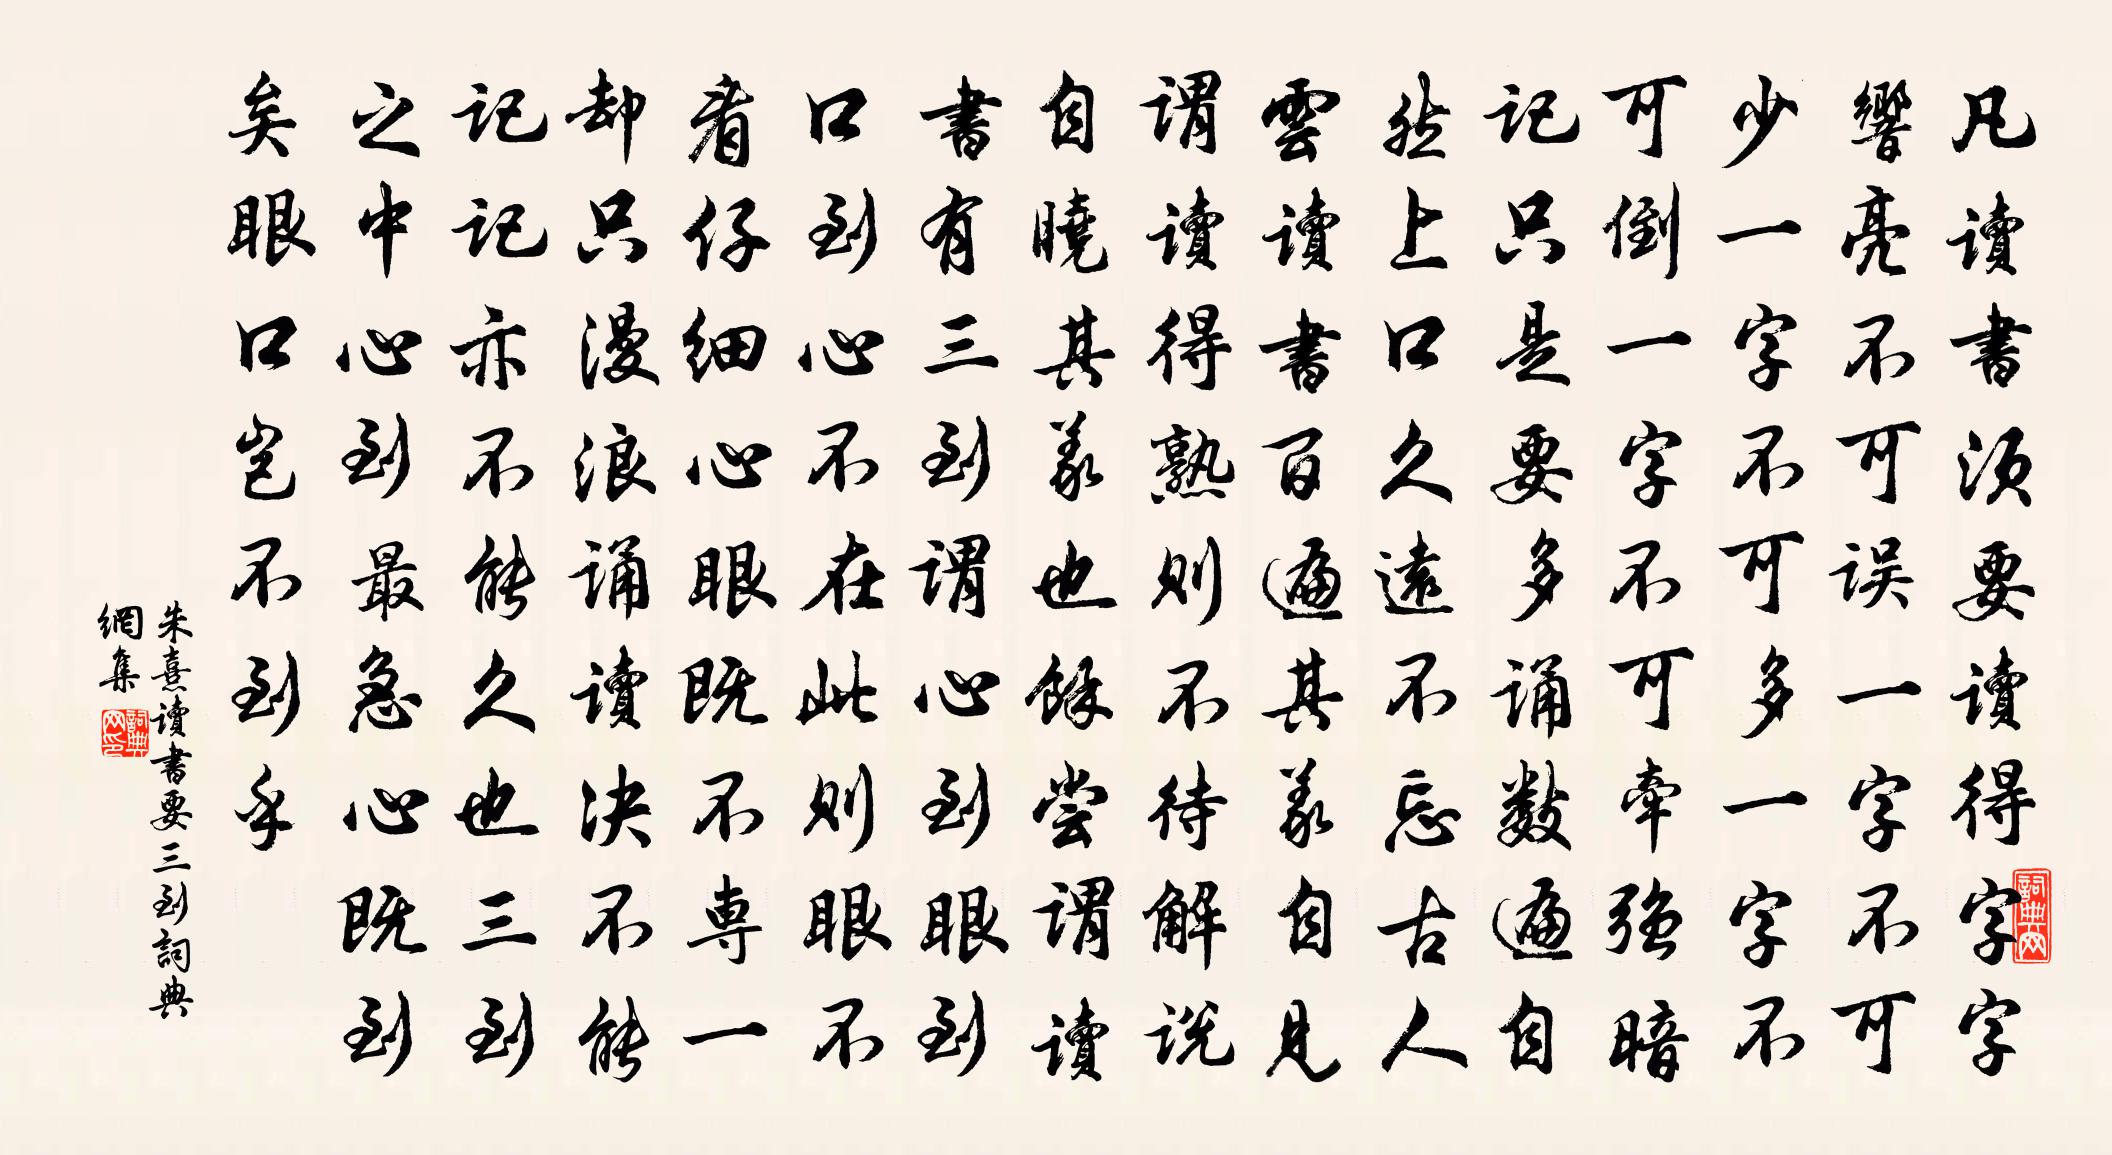 凡讀書須要讀得字字
響亮不可误一字不可
少一字不可多一字不
可倒一字不可牽强暗
记只是要多誦數遍自
然上口久遠不忘古人
雲讀書百遍其義自見
謂讀得熟則不待解説
自曉其義也餘嘗謂讀
書有三到謂心到眼到
口到心不在此則眼不
看仔细心眼既不専一
却只漫浪誦讀决不能
记记亦不能久也三到
之中心到最急心既到
矣眼口豈不到乎
朱熹讀書要三到詞典
網集
詞典网
詞典网印